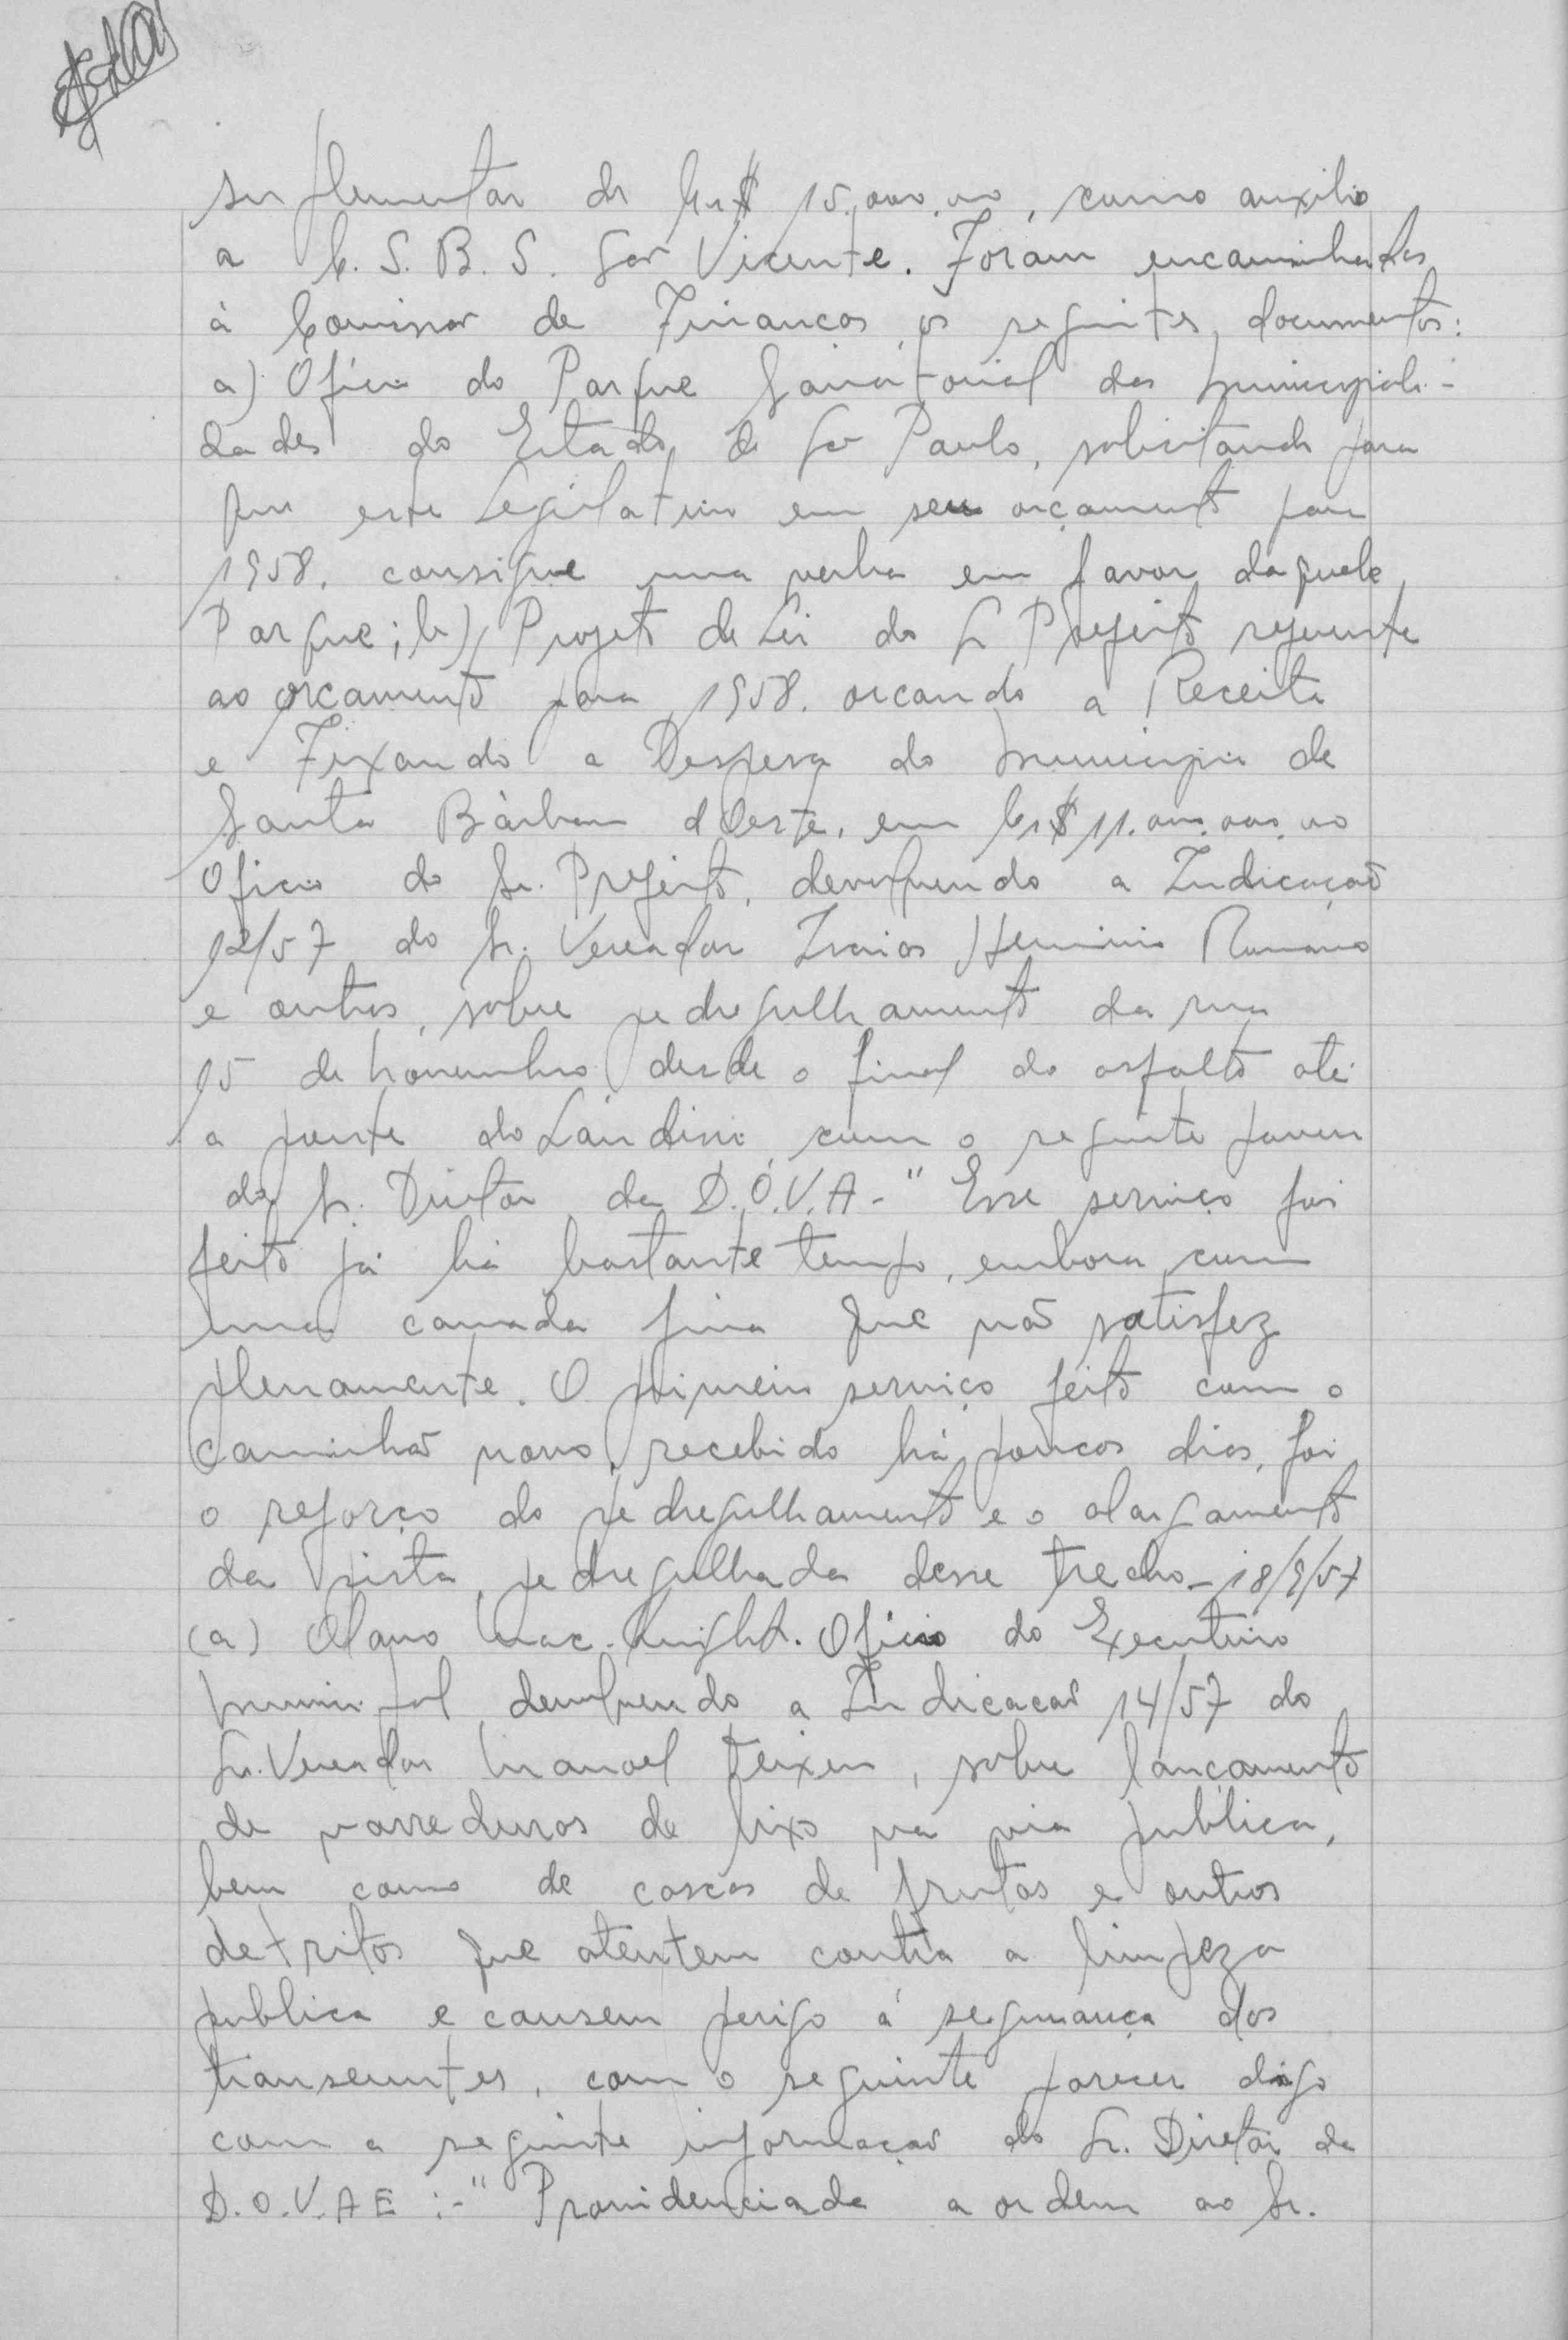 suplementar de Cr$ 15.000,00, como auxilio
a C. S. B. S. São Vicente. Foram encaminhados
á Comissão de Finanças os seguintes documentos:
a) Oficio do Parque Sanatorial das Municipali-
dades do Estado de São Paulo, solicitando para
que este Legislativo em seu orçamento para
1958, consigne uma verba em favor daquele
Parque; b) Projeto de Lei do Sr Prefeito referente
ao orçamento para 1958, orcando a Receita
e Fixando a Despesa do Municipio de
Santa Bárbara d'Oeste, em Cr$ 11.000.000,00
Oficio do Sr. Prefeito, devolvendo a Indicação
12/57 do Sr. Vereador Isaias Herminio Romano
e outros, sobre pedregulhamento da rua
15 de Novembro desde o final do asfalto até
a ponte do Landim, com o seguinte parecer
do Sr. Diretor da D.O.V.A - " Esse serviço foi
feito já há bastante tempo, embora com
uma camada fina que não satisfez
plenamente. O primeiro serviço feito com o
caminhão novo, recebido há poucos dias, foi
o reforço do pedregulhamento e o alargamento
da pista pedregulhada desse trecho - 18/9/57
(a) Olavo Mac. Knight. Oficio do Executivo
Municipal devolvendo a Indicacão 14/57 do
Sr. Vereador Manoel Teixeira, sobre lançamento
de varreduras de lixo na via pública,
bem como de cascas de frutas e outros
detritos que atentem contra a limpeza
publica e causem perigo á segurança dos
transeuntes, com o seguinte parecer digo
com a seguinte informação do Sr. Diretor da
D.O.V.A E :- " Providenciada a ordem ao Sr.